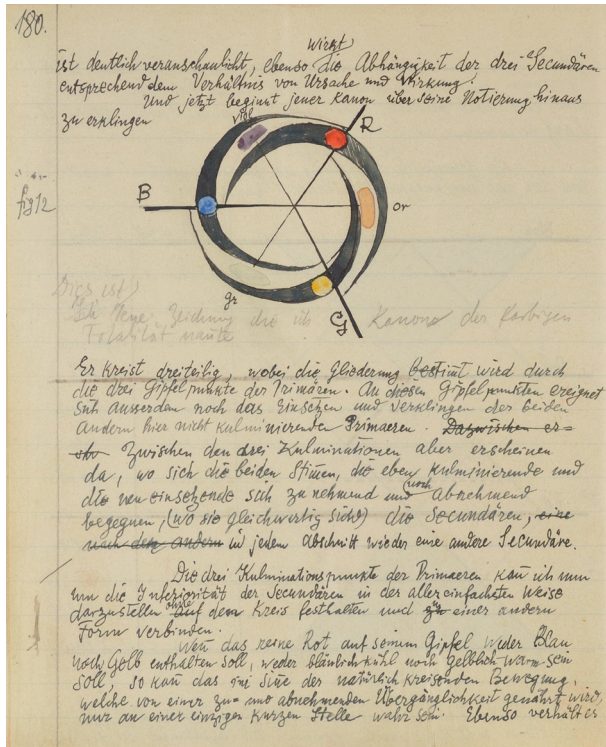 180.
wirkt
ist deutlich veranschaulicht, ebenso die Abhängigkeit der drei Secundären
entsprechend dem Verhältnis von Ursache und Wirkung.
Und jetzt beginnt jener Kanon über seine Notierung hinaus
zu erklingen
viol
R
B
fig 12
or
gr
G
Dies ist
jene Zeichnung die ich Kanon der farbigen
Totalität nannte
Er kreist dreiteilig, wobei die Gliederung bestimt wird durch
die drei Gipfelpunkte der Primären. An diesen Gipfelpunkten ereignet
sich ausserdem noch das Einsetzen und Verklingen der beiden
andern hier nicht kulminierenden Primaeren. Dazwischen er=
Zwischen den drei Kulminationen aber erscheinen
da, wo sich die beiden Stimen, die eben kulminierende und
die neu einsetzende sich zunehmend und noch abnehmend
begegnen, (wo sie gleichwertig sind) die Secundären, eine
nach der andern in jedem Abschnitt wieder eine andere Secundäre.
Die drei Kulminationspunkte der Primaeren kan ich nun
um die Inferiorität der Secundären in der allereinfachsten Weise
darzustellen ohne Auf dem Kreis festhalten und zu einer andern
Form verbinden.
Wen das reine Rot auf seinem Gipfel weder Blau
noch Gelb enthalten soll, weder bläulich kühl noch gelblich warm sein
soll, so kan das im Sine der natürlich kreisenden Bewegung,
welche von einer zu= und abnehmenden Übergänglichkeit genährt wird,
nur an einer einzigen kurzen Stelle wahr sein. Ebenso verhält es